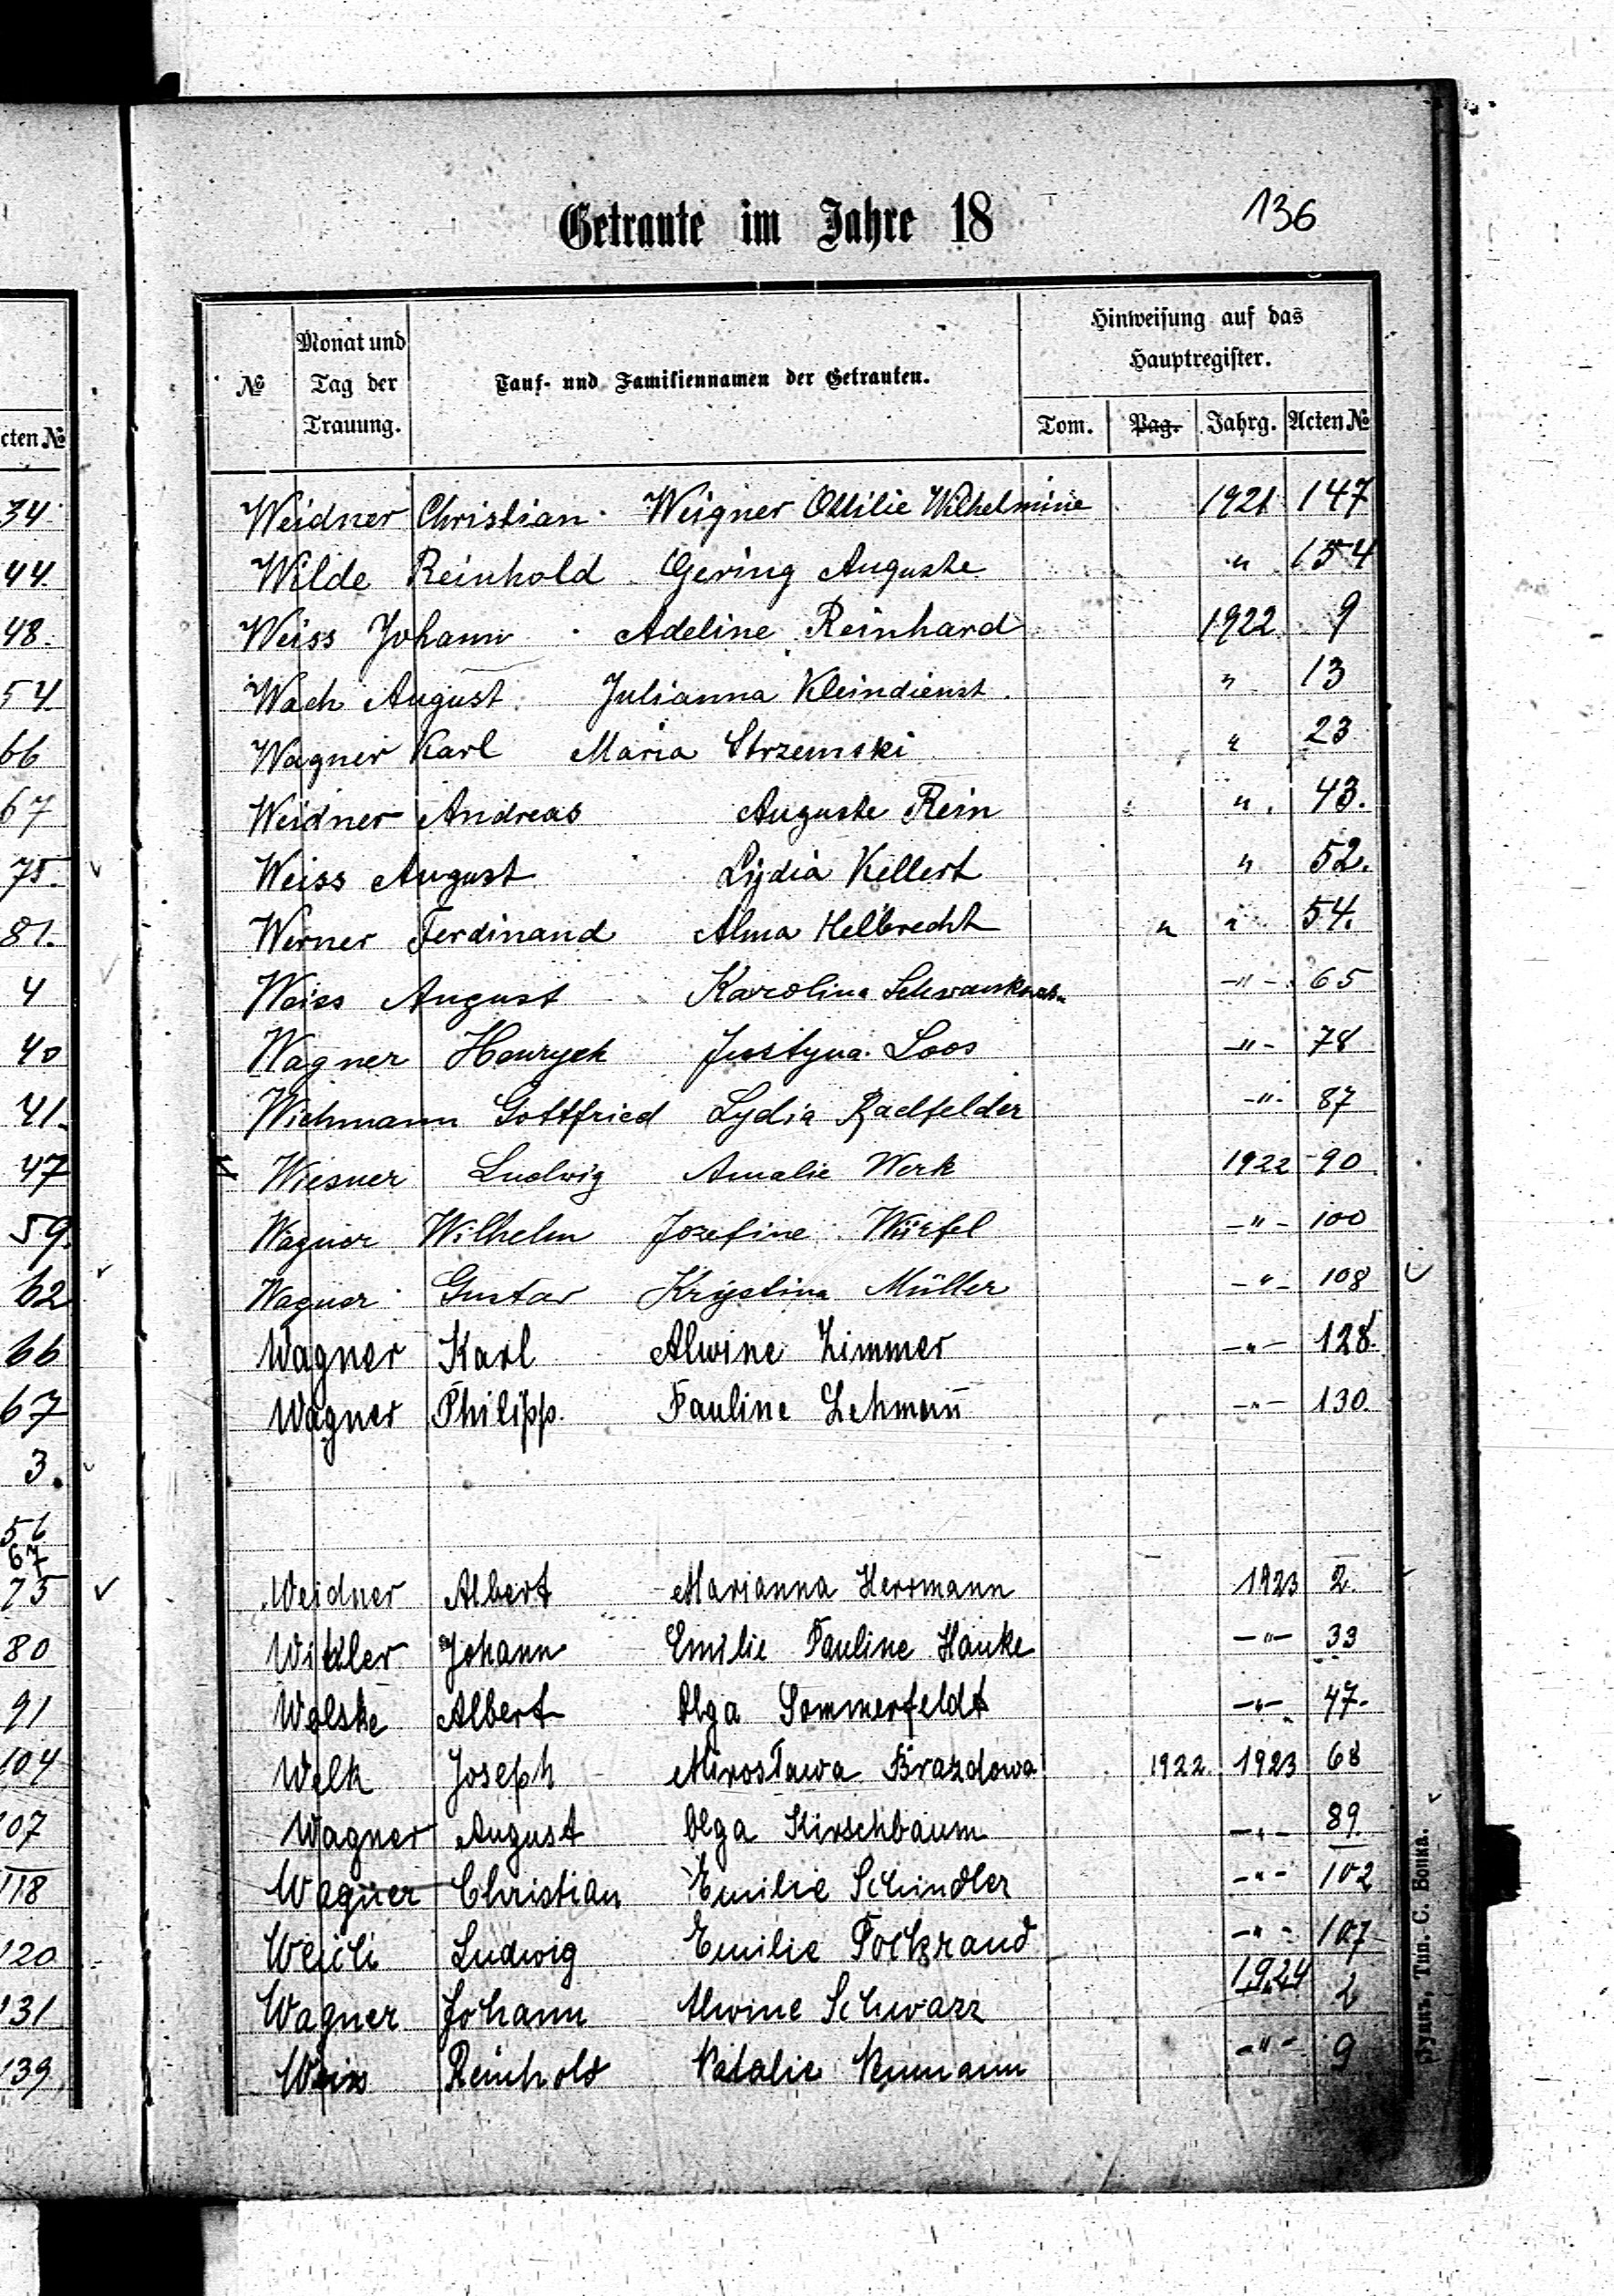 Getraute im Jahre 18
136
№
Monat und Tag der Trauung.
Tauf- und Familiennamen der Getrauten.
Hinweisung auf das Hauptregister.
Tom. Pag. Jahrg. Acten №
Weidner Christian Weigner Ottilie Wilhelmine 1921 147
Wilde Reinhold Gering Auguste " 154
Weiss Johann Adeline Reinhard 1922 9
Wach August Julianna Kleindienst " 13
Wagner Karl Maria Strzemski " 23
Weidner Andreas Auguste Rein " 43.
Weiss August Lydia Kellert " 52.
Werner Ferdinand Alma Helbrecht " " 54.
Weiss August Karolina -"- 65
Wagner Henryek Justyna Loos -"- 78
Wichmann Gottfried Lydia Radfelder -"- 87
Wiesner Ludwig Amalie Werk 1922 90
Wagner Wilhelm Jozefine Würfel -"- 100
Wagner Gustav Krystina Müller -"- 108
Wagner Karl Alwine Zimmer -"- 128.
Wagner Philipp. Pauline Lehmañ -"- 130
Weidner Albert Marianna Herrmann 1923 2
Johann Emilie Pauline Hanke -"- 33
Wolske Albert Olga Sommerfeldt -"- 47.
Welk Joseph Mirosława Brazdowa 1922 1923 68
Wagner August Olga Kirschbaum -"- 89
Wagner Christian Emilie Schindler -"- 102
Ludwig Emilie Pockrand -"- 107
Wagner Johann Alwine Schwarz 1924 2
Weiss Reinhold Natalie Neumann -"- 9
cten №
34
44.
48.
54.
66
67
75.
81.
4
40
41.
47
59.
62
66
67
3.
56
67
75
80
91
104
107
118
120
131
139
Тип. С. Вопка.